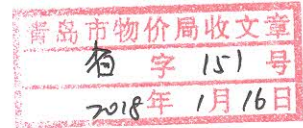 青岛市物价局收文章
省字151号
2018年1月16日